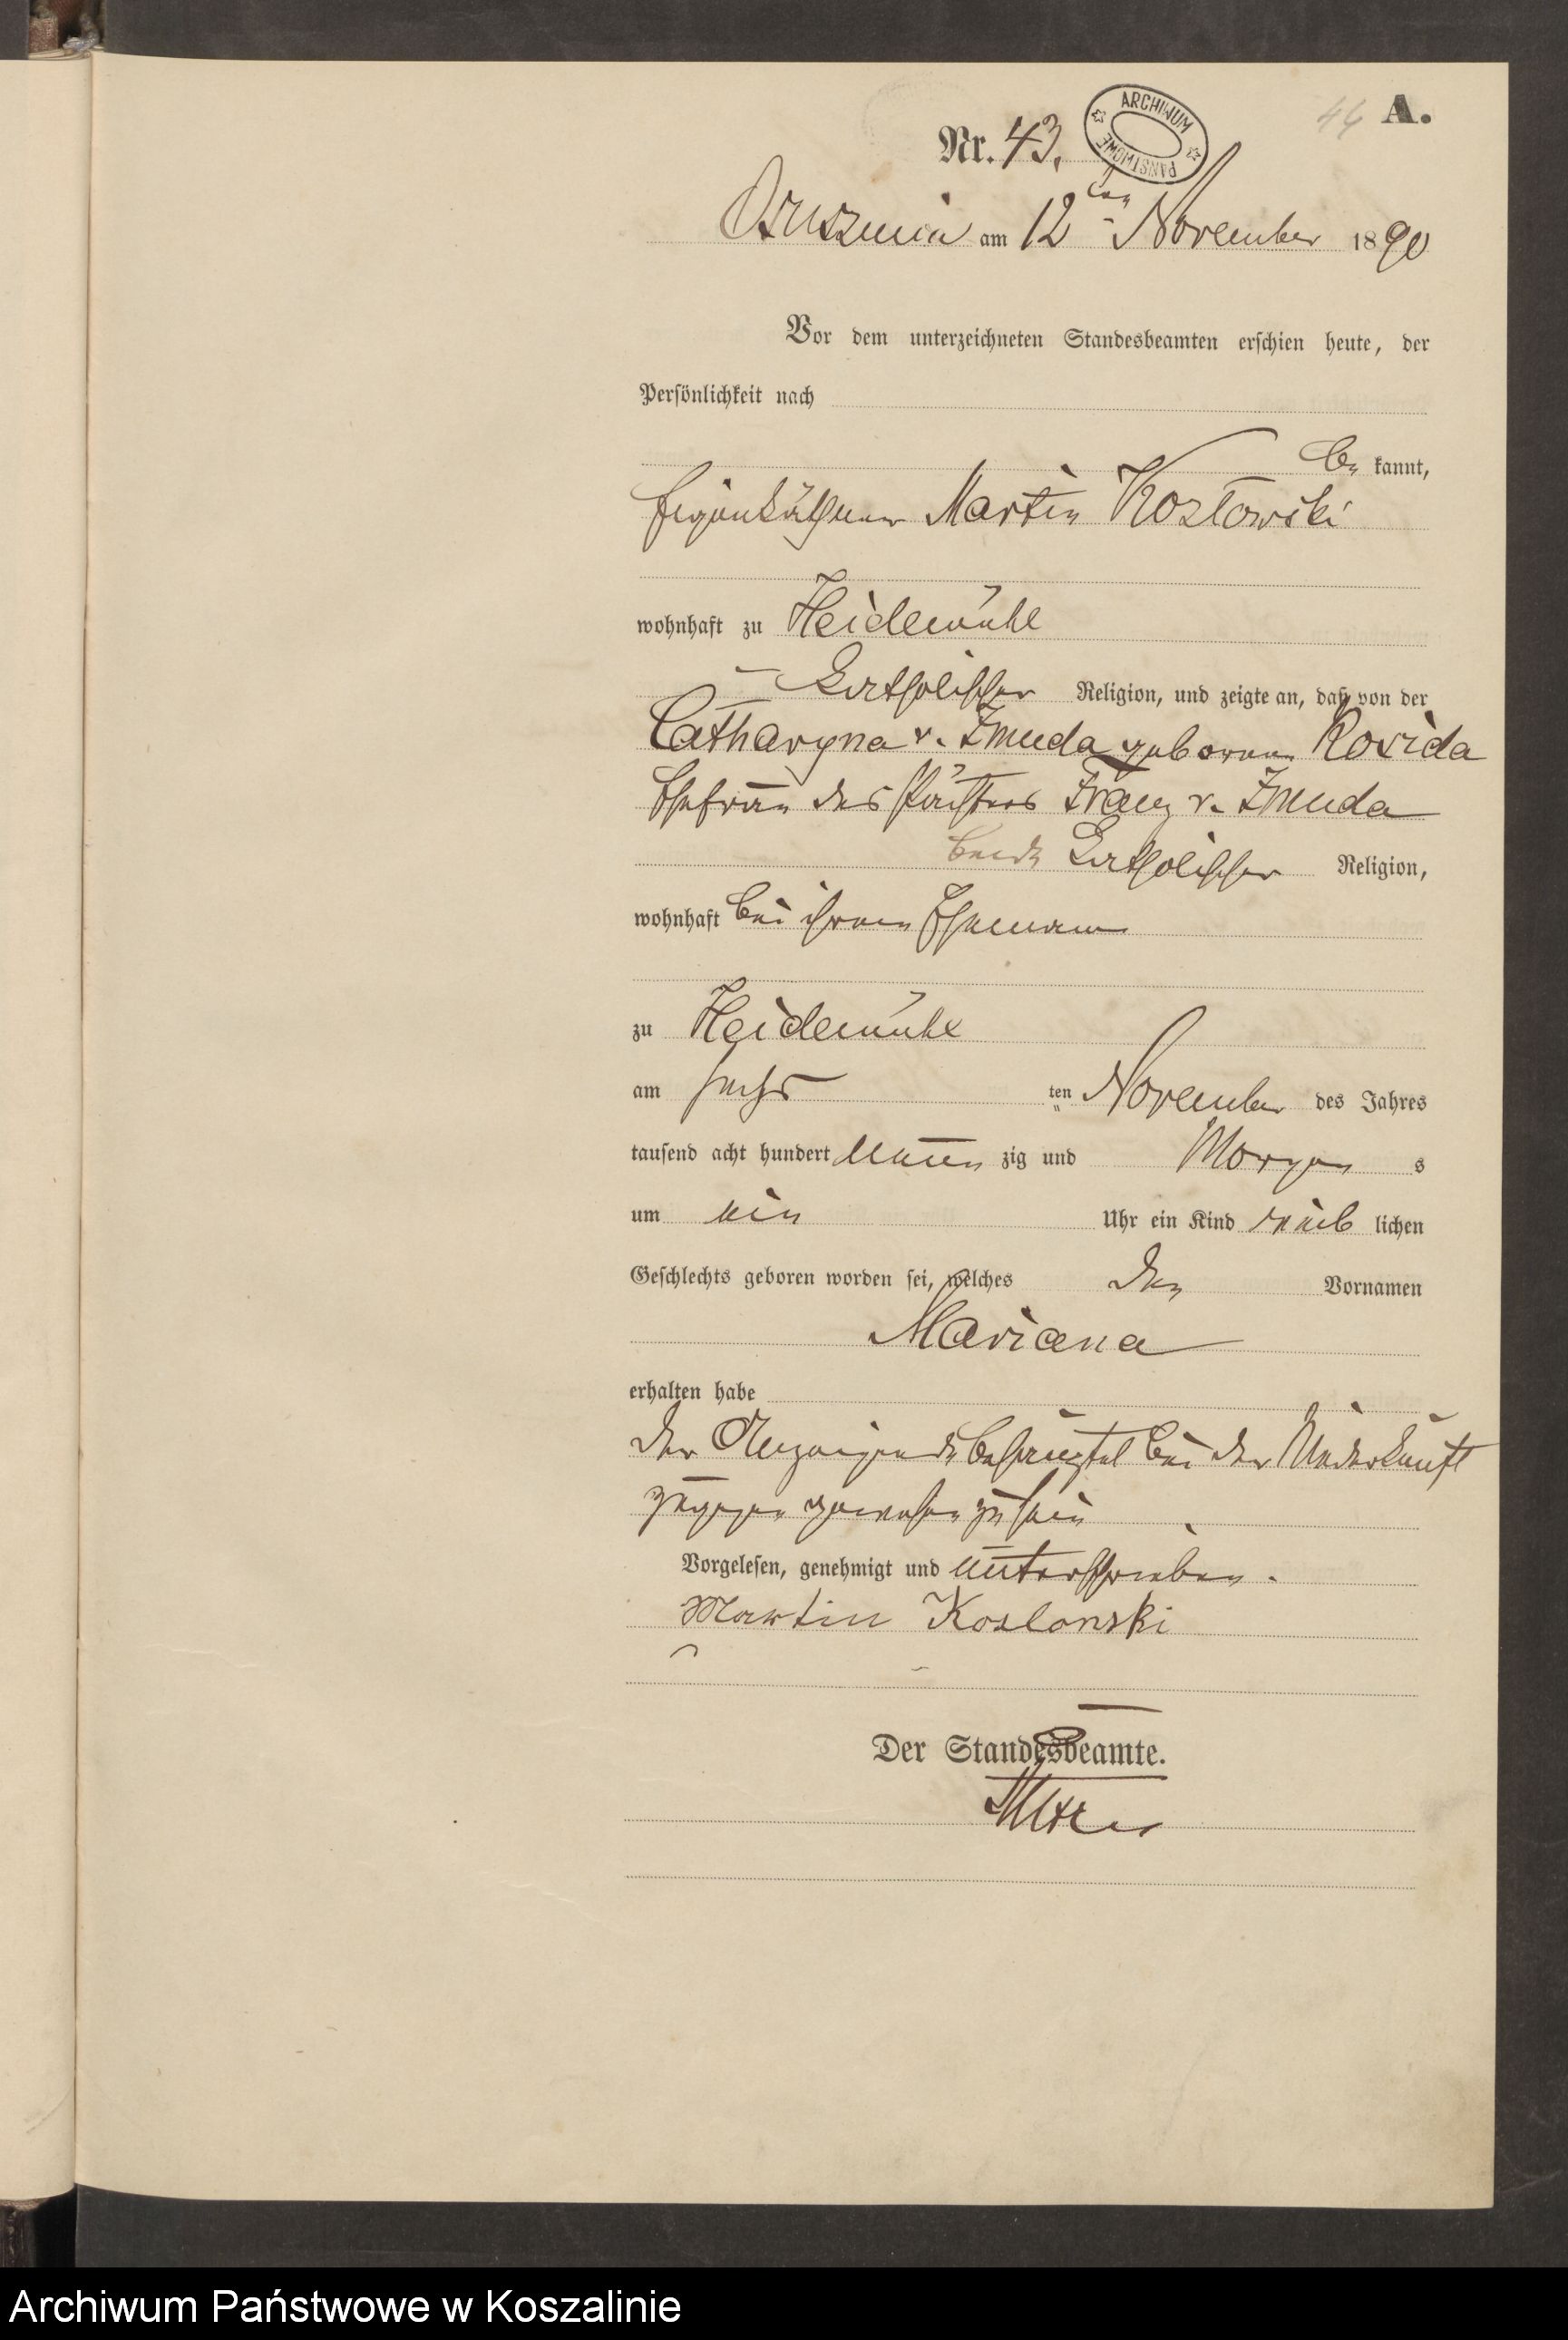 A.
44
Nr. 43.
ARCHIWUM PAŃSTWOWE
Osuszniça am 12ten November 1890
Vor dem unterzeichneten Standesbeamten erschien heute, der
Persönlichkeit nach
be kannt,
Eigenkäthner Martin Kozłowski
wohnhaft zu Heidemühl
katholischer Religion, und zeigte an, daß von der
Catharyna v. Zmuda geborenen Rosida
Ehefrau des Pächters Franz v. Zmuda
beide katholischer Religion,
wohnhaft bei ihrem Ehemann
zu Heidemühl
am sechs ten November des Jahres
tausend acht hundert neun zig und Morgen s
um ein Uhr ein Kind weib lichen
Geschlechts geboren worden sei, welches den Vornamen
Mariana
erhalten habe
der Anzeigende behauptet bei der Niederkunft
zugegen gewesen zu sein
Vorgelesen, genehmigt und unterschrieben.
Martin Koslowski
Der Standesbeamte.
Archiwum Państwowe w Koszalinie